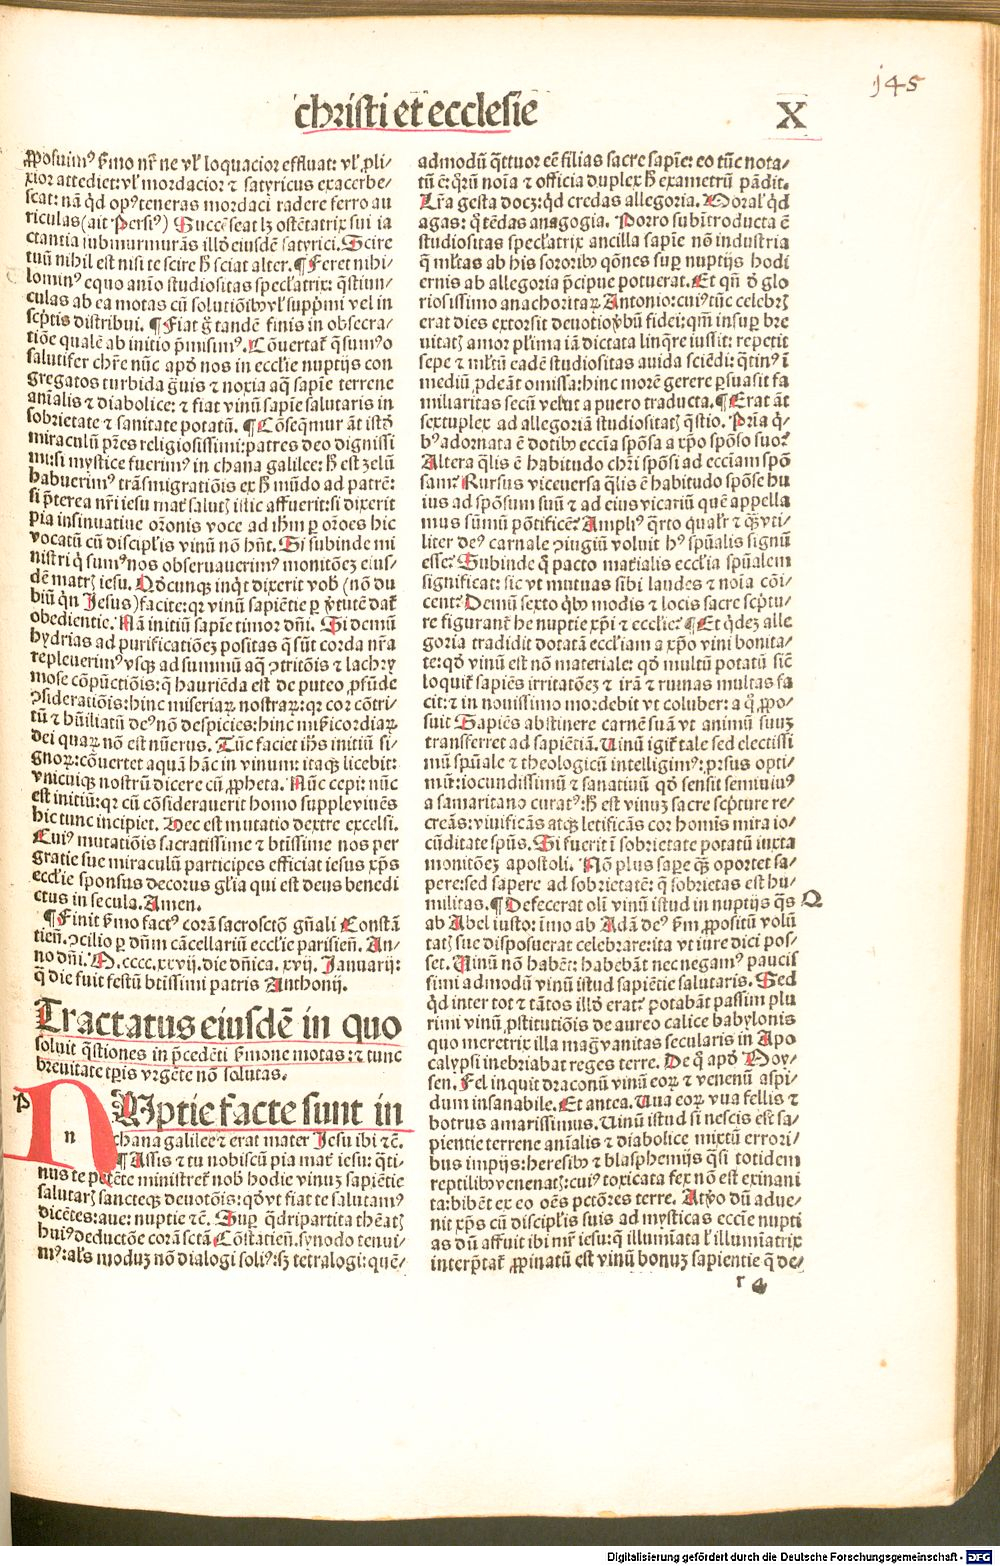 145
christi et ecclesie
X
ꝓposuimꝰ ẜmo nr̄ ne vl̓ loquacior effluat: vl̓ ꝓli⸗
xior attediet: vl̓ mordacior ⁊ satyricus exacerbe⸗
scat: nā q̇d opꝰ teneras mordaci radere ferro au
riculas (ait Persiꝰ) Succēseat lꝫ ostētatrix sui ia
ctantia submurmurās illḋ eiusdē satyrici. Scire
tuū nihil est nisi te scire ħ sciat alter. ¶ Feret nihi⸗
lominꝰ equo anio studiositas specl̓atrix: q̄stiun⸗
culas ab ea motas cū solutiōibꝰ vl̓ supp̄mi vel in
sc̄ptis distribui. ¶ Fiat g̊ tandē finis in obsecra⸗
tiōe qualē ab initio p̄misimꝰ. Cōuertat̄ q̄sumꝰ o
salutifer chr̄e nūc apḋ nos in eccl̓ie nuptijs con
gregatos turbida g̈uis ⁊ noxia aq̄ sapīe terrene
anīalis ⁊ diabolice: ⁊ fiat vinū sapīe salutaris in
sobrietate ⁊ sanitate potatū. ¶ Cōseq̄mur āt istḋ
miraculū pr̄es religiosissimi: patres deo dignissi
mi: si mystice fuerimꝰ in chana galilee: ħ est zelū
habuerimꝰ trāsmigratiōis ex ħ mūdo ad patrē:
si p̄terea nr̄i iesu mat̄ salutꝭ illic affuerit: si dixerit
pia insinuatiue or̄onis voce ad ihm̄ ꝑ or̄oes hic
vocatū cū discipl̓is vinū nō hn̄t. Si subinde mi
nistri q̇ sumꝰ nos obseruauerimꝰ monitōeꝫ eius⸗
dē matrꝭ iesu. Qḋcunqꝫ inq̇t dixerit vob̄ (nō du
biū q̇n Jesus) facite: qr vinū sapiētie ꝑ v̓tutē dat̄
obedientie. Nā initiū sapīe timor dn̄i. Si demū
hydrias ad purificatiōeꝫ positas q̄ sūt corda nr̄a
repleuerimꝰ vsqꝫ ad summū aq̄ ↄtritōis ⁊ lachry
mose cōpūctiōis: q̄ hauriēda est de puteo ꝓfūde
ↄsideratiōis: hinc miseriaꝝ nostraꝝ: qr cor cōtri⸗
tū ⁊ hūiliatū deꝰ nō despicies: hinc mīcordiaꝝ
dei quaꝝ nō est nūerus. Tūc faciet ihs̄ initiū si⸗
gnoꝝ: cōuertet aquā hāc in vinum: itaqꝫ licebit:
vnicuiqꝫ nostrū dicere cū ꝓpheta. Nūc cepi: nūc
est initiū: qr cū cōsiderauerit homo suppleuiuēs
hic tunc incipiet. Hec est mutatio dextre excelsi.
Cuiꝰ mutatiōis sacratissime ⁊ btīssime nos per
gratie sue miraculū participes efficiat iesus xp̄s
eccl̓ie sponsus decorus gl̓ia qui est deus benedi
ctus in secula. Amen.
¶ Finit ẜmo factꝰ corā sacrosctō gn̄ali Constā
tien̄. ↄcilio ꝑ dn̄m cācellariū eccl̓ie parisien̄. An⸗
no dn̄i. M.cccc.xvij. die dn̄ica. xvij. Januarij:
q̄ die fuit festū btīssimi patris Anthonij.
Tractatus eiusdē in quo
soluit q̄stiones in p̄cedēti ẜmone motas: ⁊ tunc
breuitate tꝑis vrgēte nō solutas.
P
n
NUptie facte sunt in
chana galilee ⁊ erat mater Jesu ibi ⁊c̄.
¶ Assis ⁊ tu nobiscū pia mat̄ iesu: q̄ti⸗
nus te petēte ministret̄ nob̄ hodie vinuꝫ sapiētie
salutarꝭ sancteqꝫ deuotōis: qḋ vt fiat te salutamꝰ
dicētes: aue: nuptie ⁊c̄. Suꝑ q̄dripartita thēatꝭ
huiꝰ deductōe corā sctā Cōstātien̄. synodo tenui⸗
mꝰ: al̓s moduꝫ nō dialogi soliꝰ: sꝫ tetralogi: quē⸗
admodū q̄ttuor eē filias sacre sapīe: eo tūc nota⸗
tū ē: q̄rū noīa ⁊ officia duplex ħ exametrū pādit.
Lr̄a gesta docꝫ: q̇d credas allegoria. Moral̓ q̇d
agas: q̇ tēdas anagogia. Porro subītroducta ē
studiositas specl̓atrix ancilla sapīe nō industria
q̄ ml̓tas ab his sororibꝰ q̄ōnes suꝑ nuptijs hodi
ernis ab allegoria p̄cipue potuerat. Et qn̄ ḋ glo
riosissimo anachoritaꝝ Antonio: cuiꝰ tūc celebrꝭ
erat dies extorsit deuotio ṽbū fidei: qm̄ insuꝑ bre
uitatꝭ amor pl̓ima iā dictata linq̄re iussit: repetit
sepe ⁊ ml̓tū eadē studiositas auida sciēdi: q̄tinꝰ ī
mediū ꝓdeāt omissa: hinc morē gerere ꝑsuasit fa
miliaritas secū velut a puero traducta. ¶ Erat āt
sextuplex ad allegoriā studiositatꝭ q̄stio. Pria q̇⸗
bꝰ adornata ē dotibꝰ eccīa spōsa a xp̄o spōso suo?
Altera q̄lis ē habitudo chr̄i spōsi ad eccīam spō
sam? Rursus viceuersa q̄lis ē habitudo spōse hu
ius ad spōsum suū ⁊ ad eius vicariū quē appella
mus sūmū pōtificē? Amplꝰ q̄rto qualr̄ ⁊ q̄ꝫ vti⸗
liter deꝰ carnale ↄiugiū voluit hꝰ spūalis signū
esse? Subinde q̄ pacto matr̄ialis eccl̓ia spūalem
significat: sic vt mutuas sibi laudes ⁊ noīa cōi⸗
cent? Demū sexto q̇bꝰ modis ⁊ locis sacre sc̄ptu⸗
re figurant̄ he nuptie xp̄i ⁊ eccl̓ie? ¶ Et q̇deꝫ alle
goria tradidit dotatā eccl̓iam a xp̄o vini bonita⸗
te: qḋ vinū est nō materiale: qḋ multū potatū sic̄
loquit̄ sapiēs irritatōeꝫ ⁊ irā ⁊ ruinas multas fa
cit: ⁊ in nouissimo mordebit vt coluber: a q̊ ꝓpo⸗
suit Sapiēs abstinere carnē suā vt animū suuꝫ
transferret ad sapiētiā. Uinū igit̄ tale sed electissi
mū spūale ⁊ theologicū intelligimꝰ: ꝓrsus opti⸗
mū: iocundissimū ⁊ sanatiuū qḋ sensit semiuiuꝰ
a samaritano curatꝰ: ħ est vinuꝫ sacre sc̄pture re⸗
creās: viuificās atqꝫ letificās cor homīs mira io⸗
cūditate spūs. Si fuerit ī sobrietate potatū iuxta
monitōeꝫ apostoli. Nō plus saꝑe q̄ꝫ oportet sa⸗
pere: sed sapere ad sobrietatē: q̄ sobrietas est hu⸗
militas. ¶ Defecerat olī vinū istud in nuptijs q̄s
Q
ab Abel iusto: imo ab Adā deꝰ ẜm ꝓpositū volū
tatꝭ sue disposuerat celebrare: ita vt iure dici pos⸗
set. Uinū nō habēt: habebāt nec negamꝰ paucis
simi admodū vinū istud sapiētie salutaris. Sed
q̇d inter tot ⁊ tātos illḋ erat? potabāt passim plu
rimi vinū ꝓstitutiōis de aureo calice babylonis
quo meretrix illa mag̈ vanitas secularis in Apo
calypsi inebriabat reges terre. De q̄ apḋ Moy⸗
sen. Fel inquit draconū vinū eoꝝ ⁊ venenū aspi⸗
dum insanabile. Et antea. Uua eoꝝ vua fellis ⁊
botrus amarissimus. Uinū istud si nescis est sa⸗
pientie terrene anīalis ⁊ diabolice mixtū errori⸗
bus impijs: heresibꝰ ⁊ blasphemijs q̄si totidem
reptilibꝰ venenatꝭ: cuiꝰ toxicata fex nō est exinani
ta: bibēt ex eo oēs pctōres terre. At v̓o dū adue⸗
nit xp̄s cū discipl̓is suis ad mysticas eccīe nupti
as dū affuit ibi mr̄ iesu: q̄ illumīata l̓ illumīatrix
interp̄tat̄ ꝓpinatū est vinū bonuꝫ sapientie q̄ de⸗
r 4
Digitalisierung gefördert durch die Deutsche Forschungsgemeinschaft - DFG